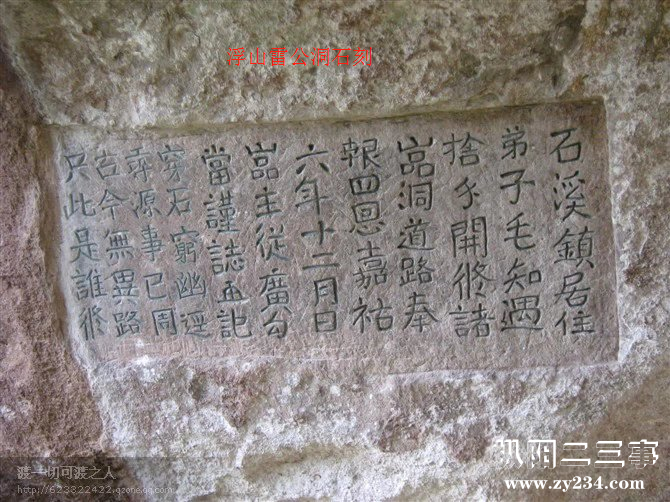 浮山雷公洞石刻
石溪鎮居住
弟子毛知遇
捨開修諸
嵓洞道路奉
報四恩嘉祐
六年十二月日
嵓主從廣勾
當謹誌記
穿石窮幽逕
尋源事已周
古今無異路
只此是誰修
渡一切可渡之人
http://623822422.qzone.qq.com
枞阳二三事
www.zy234.com